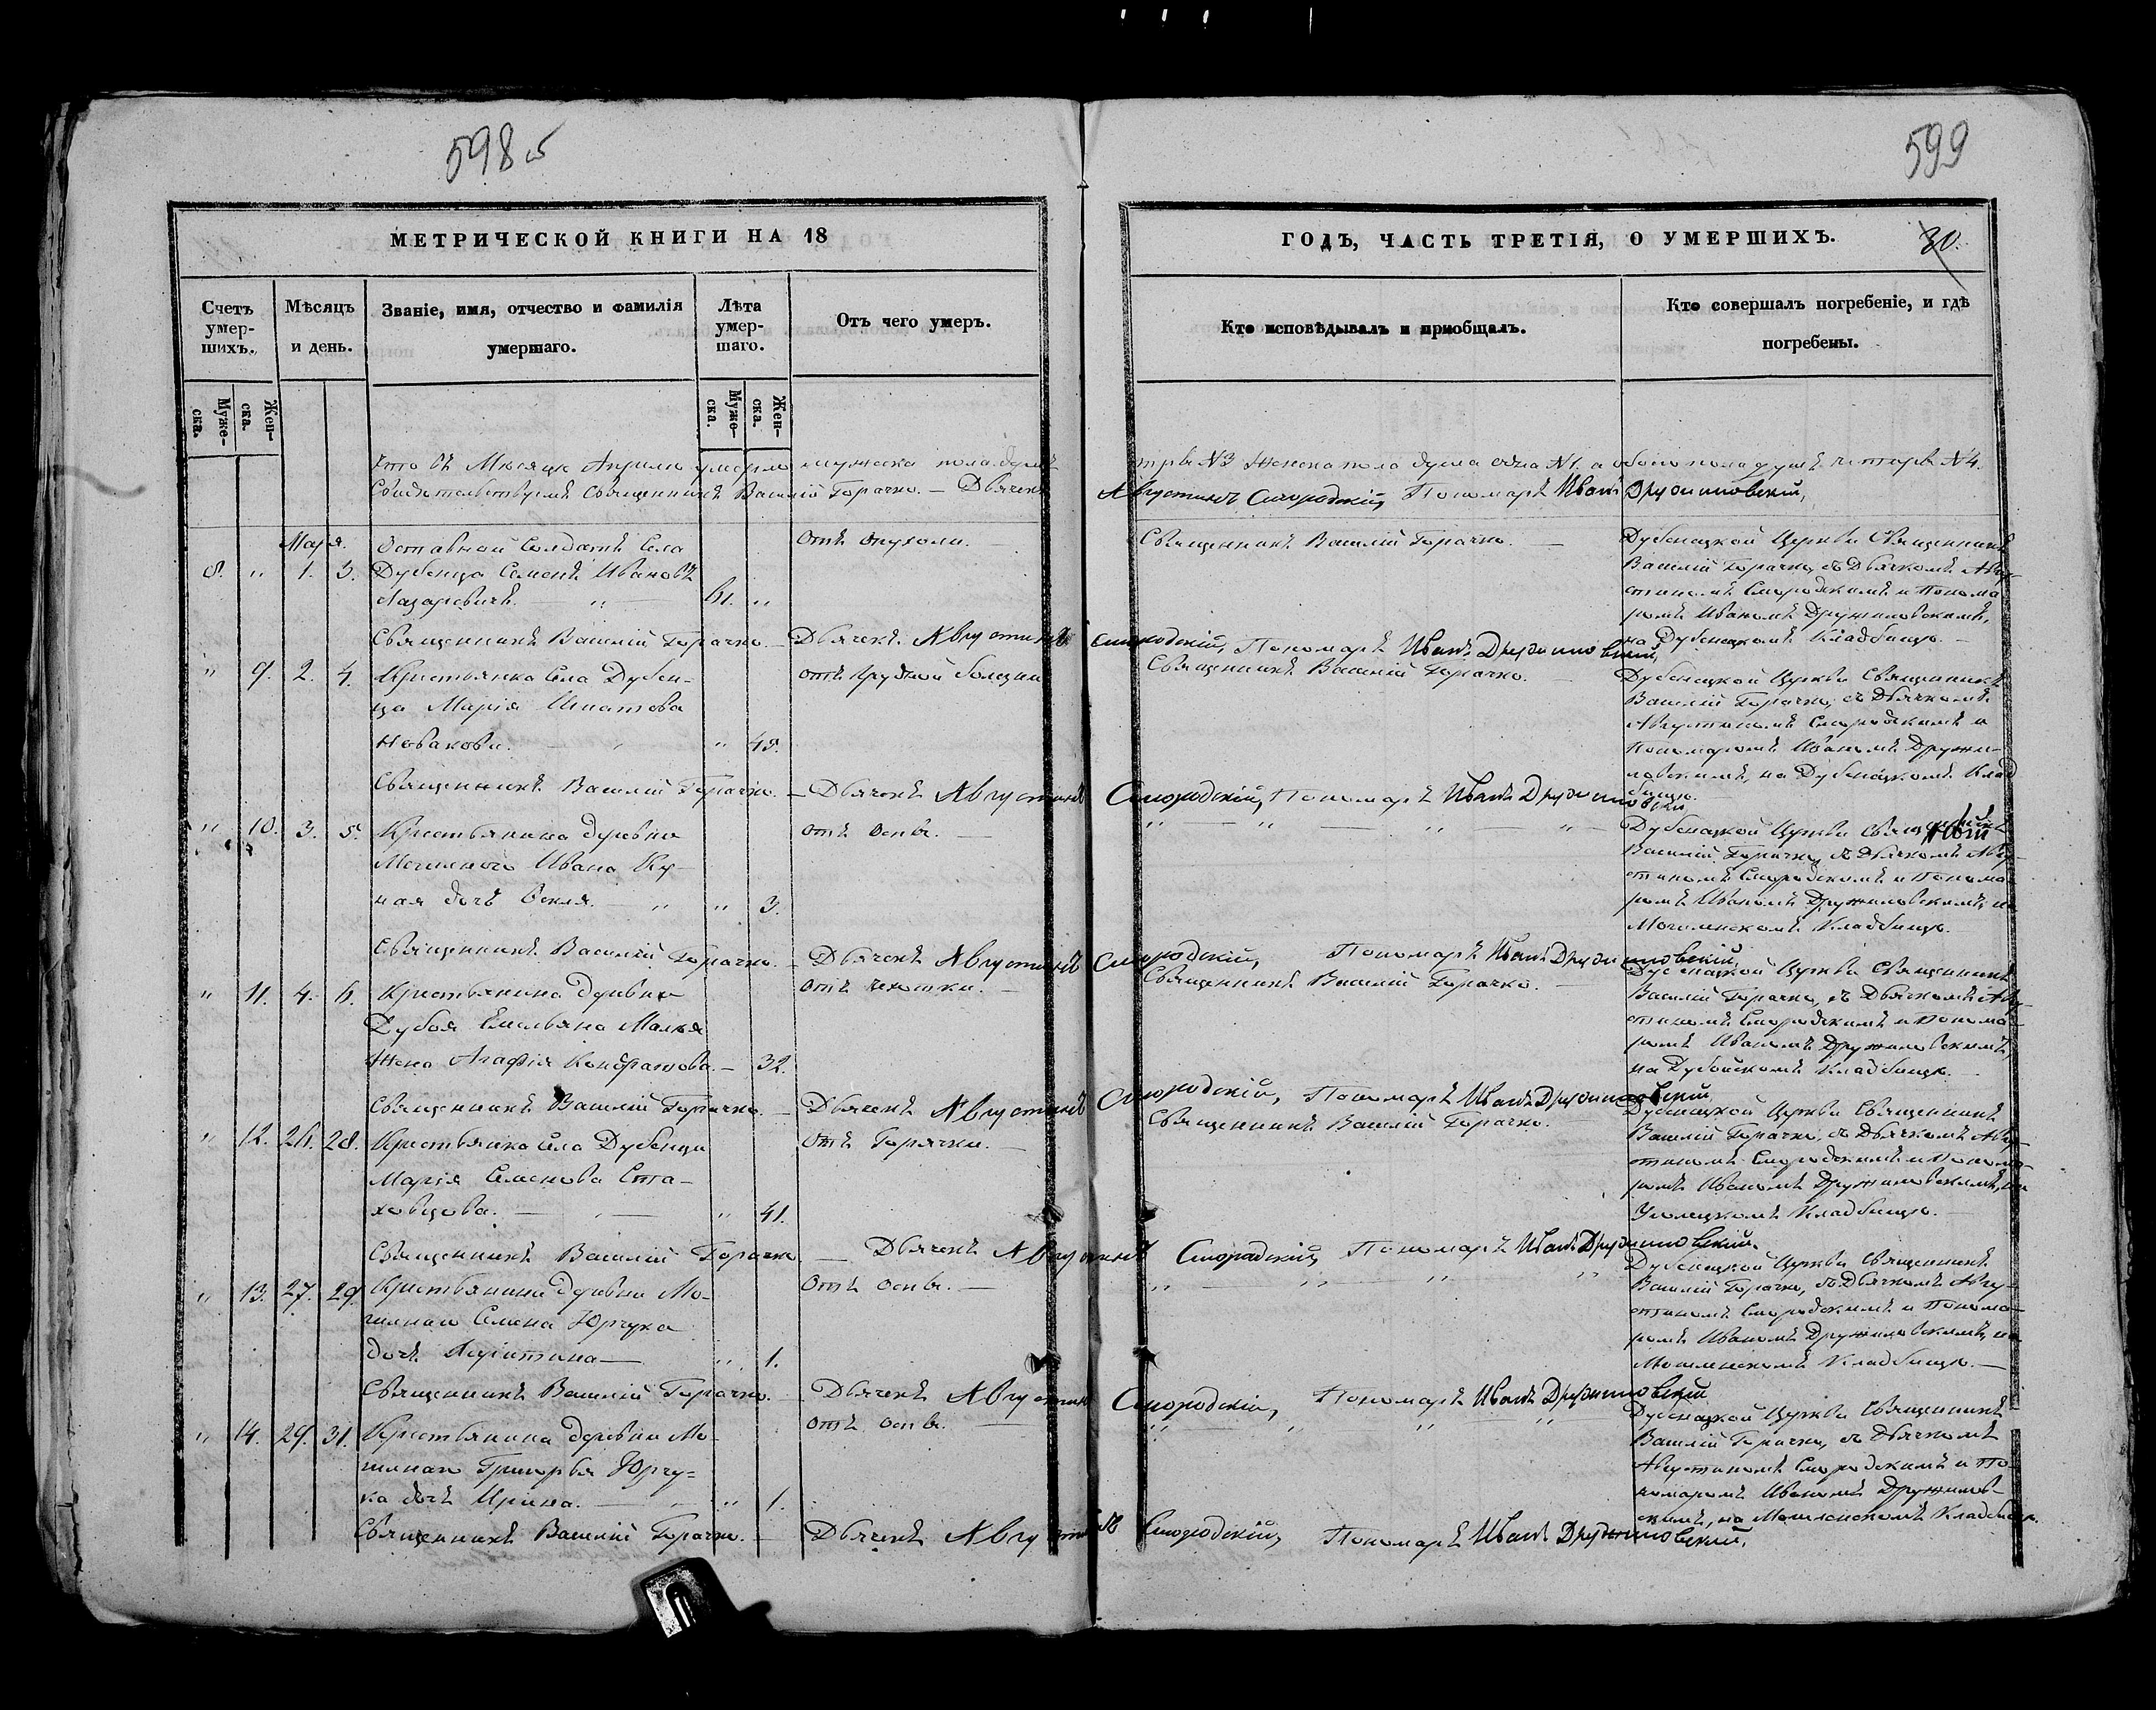 598 об
599
МЕТРИЧЕСКОЙ КНИГИ НА 18
ГОДЪ, ЧАСТЬ ТРЕТІЯ, О УМЕРШИХЪ.
30.
Счетъ умер-шихъ.
Мѣсяцъ и день.
Званіе, имя, отчество и фамилія умершаго.
Лѣта умер-шаго.
Отъ чего умеръ.
Кто исповѣдывалъ и приобщалъ.
Кто совершалъ погребеніе, и гдѣ погребены.
Муже-ска.
Жен-ска.
Муже-ска.
Жен-ска.
Что въ Мѣсяцѣ Апрѣлѣ умерло мужеска пола душъ три №3 Женска пола душа одна №1. а обоего пола душъ четыре №4.
Свидѣтельствуемъ Священникъ Василій Горачко. — Дьячекъ Августинъ Смородскій, Пономарь Иванъ Дружиловскій,
Мая.
8. " 1. 3.
Отставной Солдатъ Села
Дубенца Семенъ Ивановъ
Лазаревичъ. — " — 61. "
Отъ опухоли. —
Священникъ Василій Горачко. —
Дубенецкой Церкви Священникъ
Василій Горачко, съ Дьячкомъ Авгу-
стиномъ Смородскимъ и Понома
ремъ Иваномъ Дружиловскимъ,
на Дубенецкомъ Кладбищѣ. —
Священникъ Василій Горачко. — Дьячекъ Августинъ Смородскій, Пономарь Иванъ Дружиловскій,
" 9. 2. 4.
Крестьянка Села Дубен-
ца Марія Игнатова
Новакова. — " " 45.
отъ грудной болезни
Священникъ Василій Горачко. —
Дубенецкой Церкви Священникъ
Василій Горачко, съ Дьячкомъ
Августиномъ Смородскимъ и
Пономаремъ Иваномъ Дружи-
ловскимъ, на Дубенецкомъ Клад
бищѣ. —
Священникъ Василій Горачко. — Дьячекъ Августинъ Смородскій, Пономарь Иванъ Дружиловскій
" 10. 3. 5.
Крестьянина деревни
Могильного Ивана Ку-
ная дочь — " " 3.
отъ оспы. —
" — " — " — " —
Дубенецкой Церкви Священникъ
Василій Горачко, съ Дьячкомъ Авгу-
стиномъ Смородскимъ и Понома
ремъ Иваномъ Дружиловскимъ, на
Могиленскомъ Кладбищѣ.
Священникъ Василій Горачко. — Дьячекъ Августинъ Смородскій, Пономарь Иванъ Дружиловскій,
" 11. 4. 6.
Крестьянина деревни
Дубоя Емельяна
Жена Агафія Кондратова. — 32.
отъ чехотки. —
Священникъ Василій Горачко. —
Дубенецкой Церкви Священникъ
Василій Горачко, съ Дьячкомъ Авгу-
стиномъ Смородскимъ и Понома-
ремъ Иваномъ Дружиловскимъ
на Дубойскомъ Кладбищѣ. —
Священникъ Василій Горачко. — Дьячекъ Августинъ Смородскій, Пономарь Иванъ Дружиловскій,
" 12. 26. 28.
Крестьянка Села Дубенца
Марія Семенова Ста-
ховцова. — " — " 41.
отъ Горячки. —
Священникъ Василій Горачко. —
Дубенецкой Церкви Священникъ
Василій Горачко, съ Дьячкомъ Авгу-
стиномъ Смородскимъ и Понома-
ремъ Иваномъ Дружиловскимъ, на
Кладбищѣ. —
Священникъ Василій Горачко — Дьячекъ Августинъ Смородскій, Пономарь Иванъ Дружиловскій.
" 13. 27. 29.
Крестьянина деревни Мо-
гильного Семена Юрчука
дочь — " 1.
отъ оспы. —
" — " — " — "
Дубенецкой Церкви Священникъ
Василій Горачко, съ Дьячкомъ Авгу-
стиномъ Смородскимъ и Понома-
ремъ Иваномъ Дружиловскимъ, на
Могиленскомъ Кладбищѣ. —
Священникъ Василій Горачко. — Дьячекъ Августинъ Смородскій, Пономарь Иванъ Дружиловскій
" 14. 29. 31.
Крестьянина деревни Мо-
гильнаго Григорья Юрчу-
ка дочь Ирина. — " " 1.
отъ оспы. —
" — " — " — "
Дубенецкой Церкви Священникъ
Василій Горачко, съ Дьячкомъ
Августиномъ Смородскимъ и По
номаремъ Иваномъ Дружилов-
скимъ, на Могиленскомъ Кладбищѣ.
Священникъ Василій Горачко. — Дьячекъ Августинъ Смородскій, Пономарь Иванъ Дружиловскій.